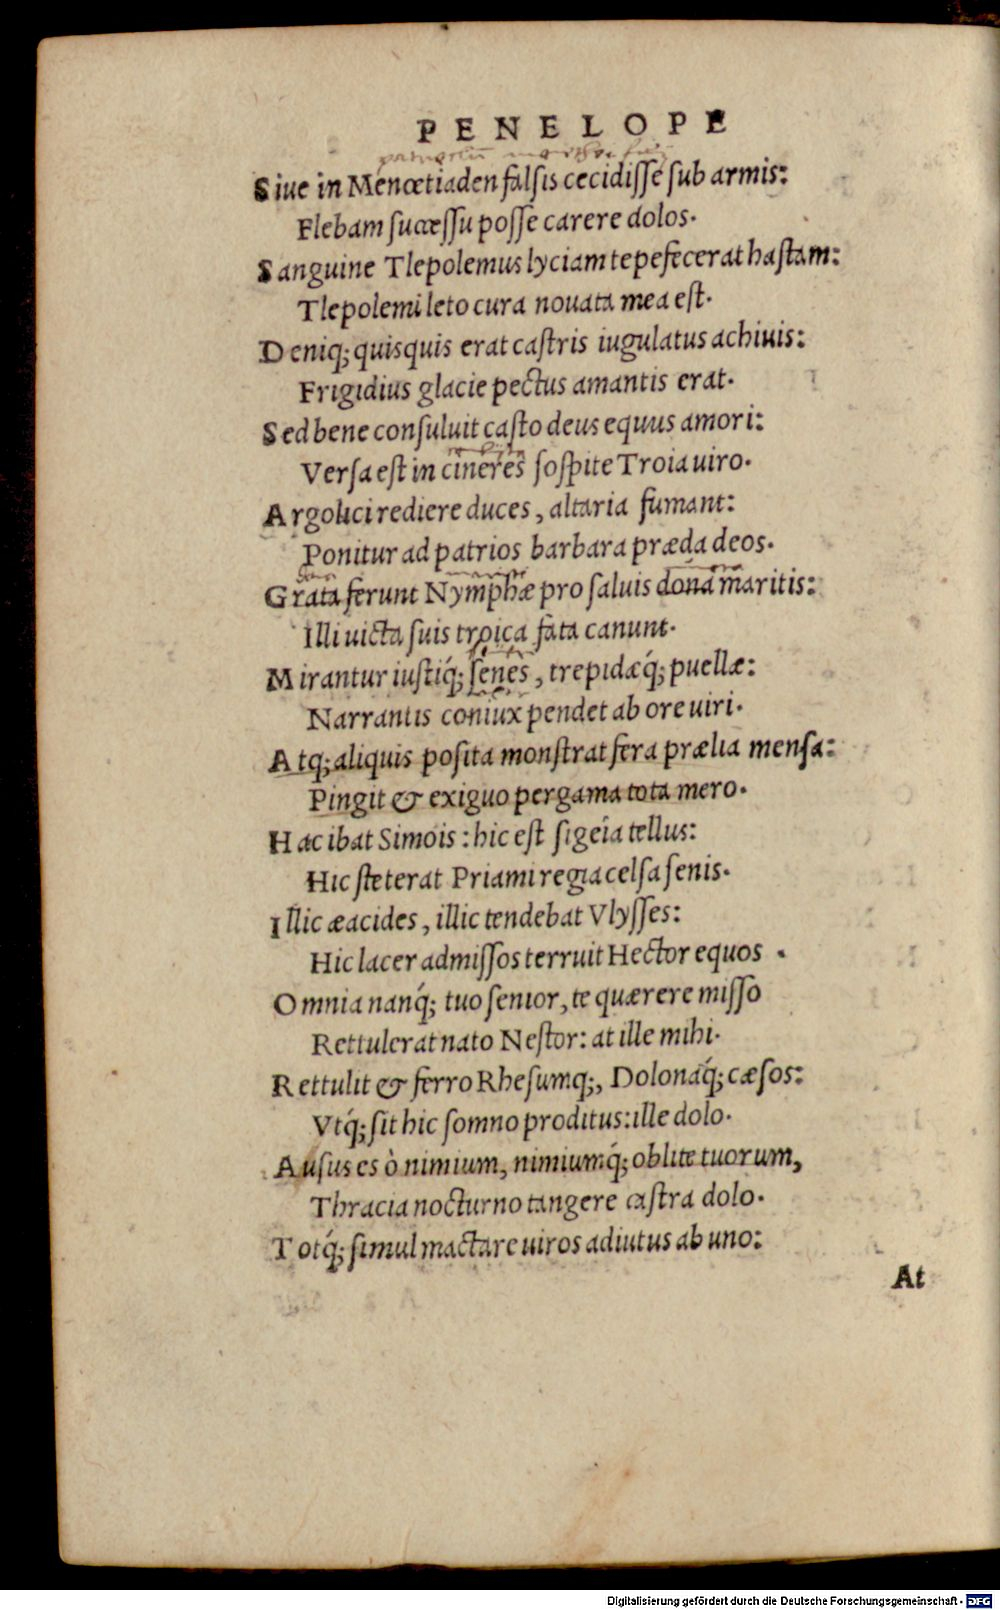 PENELOPE
Siue in Menœtiaden falsis cecidisse sub armis:
Flebam successu posse carere dolos.
Sanguine Tlepolemus lyciam tepefecerat hastam:
Tlepolemi leto cura nouata mea est.
Deniq; quisquis erat castris iugulatus achiuis:
Frigidius glacie pectus amantis erat.
Sed bene consuluit casto deus equus amori:
Versa est in cineres sospite Troia uiro.
Argolici rediere duces, altaria fumant:
Ponitur ad patrios barbara præda deos.
Grata ferunt Nymphæ pro saluis dona maritis:
Illi uicta suis troica fata canunt.
Mirantur iustiq́; senes, trepidæq́; puellæ:
Narrantis coniux pendet ab ore uiri.
Atq; aliquis posita monstrat fera prælia mensa:
Pingit & exiguo pergama tota mero.
Hac ibat Simois: hic est sigeia tellus:
Hic steterat Priami regia celsa senis.
Illic æacides, illic tendebat Vlysses:
Hic lacer admissos terruit Hector equos.
Omnia nanq́; tuo senior, te quærere misso
Rettulerat nato Nestor: at ille mihi.
Rettulit & ferro Rhesumq;, Dolonaq́; cæsos:
Vtq́; sit hic somno proditus: ille dolo.
Ausus es ò nimium, nimiumq́; oblite tuorum,
Thracia nocturno tangere castra dolo.
Totq́; simul mactare uiros adiutus ab uno:
At
Digitalisierung gefördert durch die Deutsche Forschungsgemeinschaft - DFG